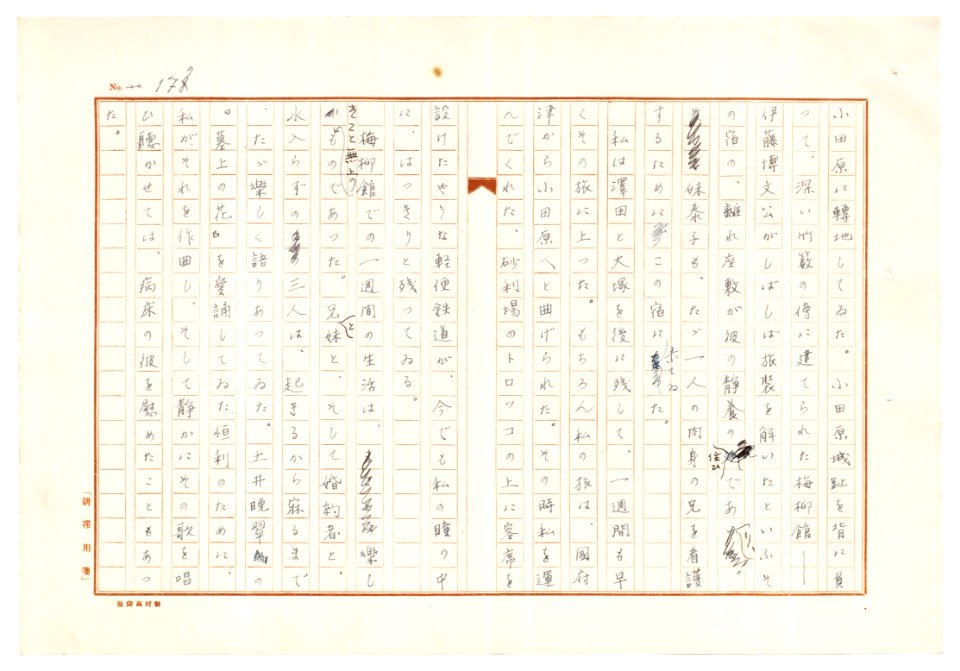 No. 178
小田原に轉地してゐた。小田原城趾を背に負
つて、深い竹藪の傍に建てられた梅柳館――
伊藤博文公がしばしば旅装を解いたといふそ
の宿の、離れ座敷が彼の静養の住ひであり、
妹泰子も、たゞ一人の肉身の兄を看護
するためにこの宿に来てゐた。
私は澤田と大塚を後に残して、一週間も早
くその旅に上つた。もちろん私の旅は、國府
津から小田原へと曲げられた。その時私を運
んでくれた、砂利場のトロツコの上に客席を
設けたやうな軽便鉄道が、今でも私の瞳の中
に、はつきりと残つてゐる。
梅柳館での一週間の生活は、樂し
きこと無上のものであつた。兄妹と、そして婚約者と、
水入らずの三人は、起きるから寐るまで
、たゞ樂しく語りあつてゐた。土井晩翠の
「墓上の花」を愛誦してゐた恒利のために、
私がそれを作曲し、そして静かにその歌を唱
ひ聽かせては、病床の彼を慰めたこともあつ
た。